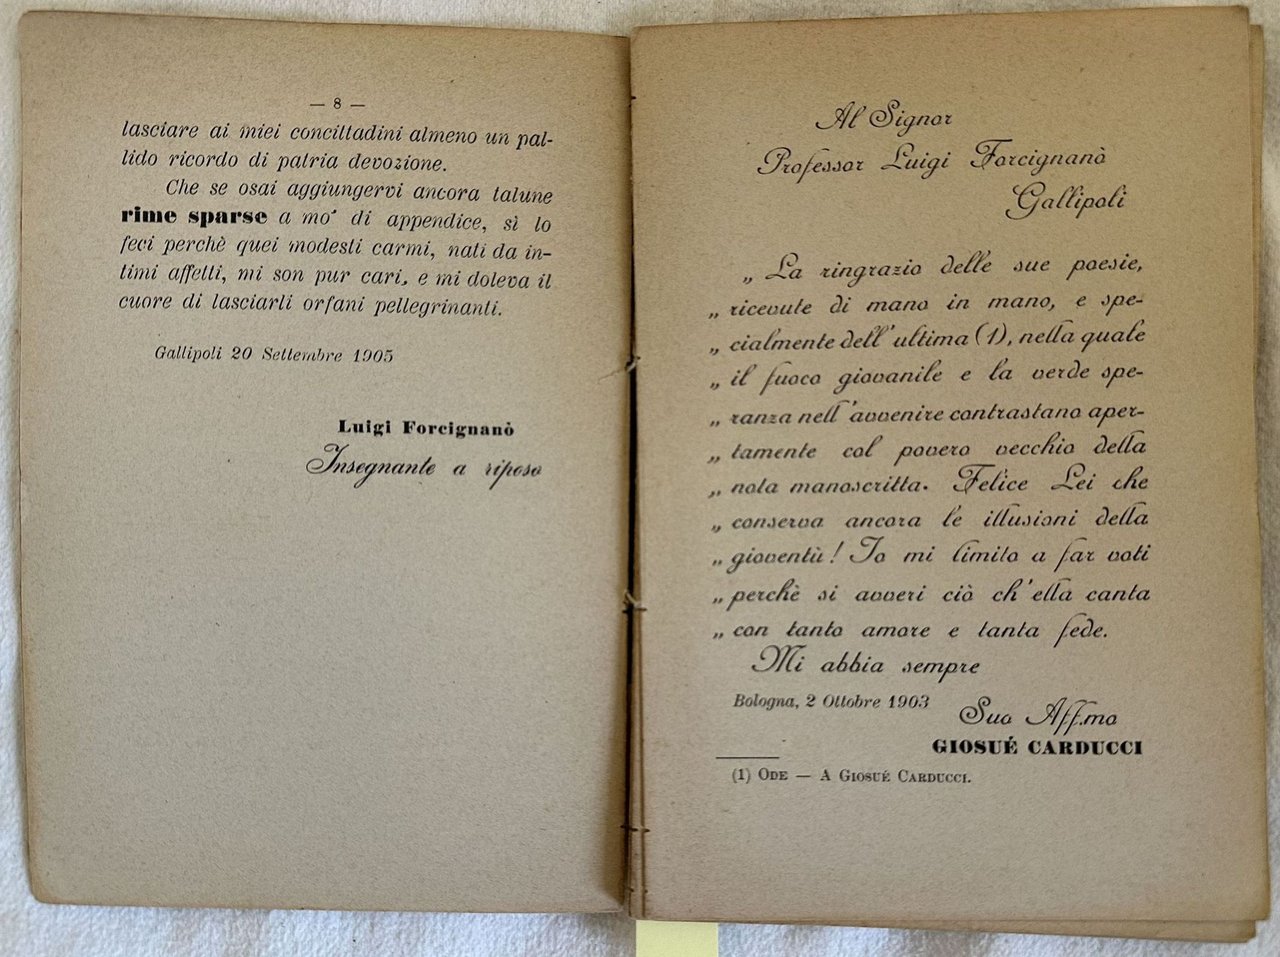 — 8 —
lasciare ai miei concittadini almeno un pal-
lido ricordo di patria devozione.
Che se osai aggiungervi ancora talune
rime sparse a mo' di appendice, sì lo
feci perchè quei modesti carmi, nati da in-
timi affetti, mi son pur cari, e mi doleva il
cuore di lasciarli orfani pellegrinanti.
Gallipoli 20 Settembre 1905
Luigi Forcignanò
Insegnante a riposo
Al Signor
Professor Luigi Forcignanò
Gallipoli
„ La ringrazio delle sue poesie,
„ ricevute di mano in mano, e spe-
„ cialmente dell'ultima (1), nella quale
„ il fuoco giovanile e la verde spe-
„ ranza nell'avvenire contrastano aper-
„ tamente col povero vecchio della
„ nota manoscritta. Felice Lei che
„ conserva ancora le illusioni della
„ gioventù! Io mi limito a far voti
„ perchè si avveri ciò ch'ella canta
„ con tanto amore e tanta fede.
Mi abbia sempre
Bologna, 2 Ottobre 1903
Suo Aff.mo
GIOSUÉ CARDUCCI
(1) ODE — A GIOSUÉ CARDUCCI.